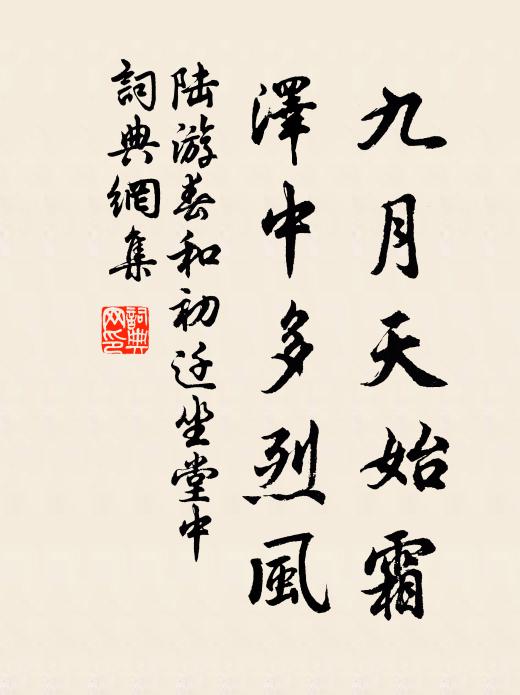 九月天始霜
澤中多烈風
陆游春和初迁坐堂中
詞典網集
詞典网印